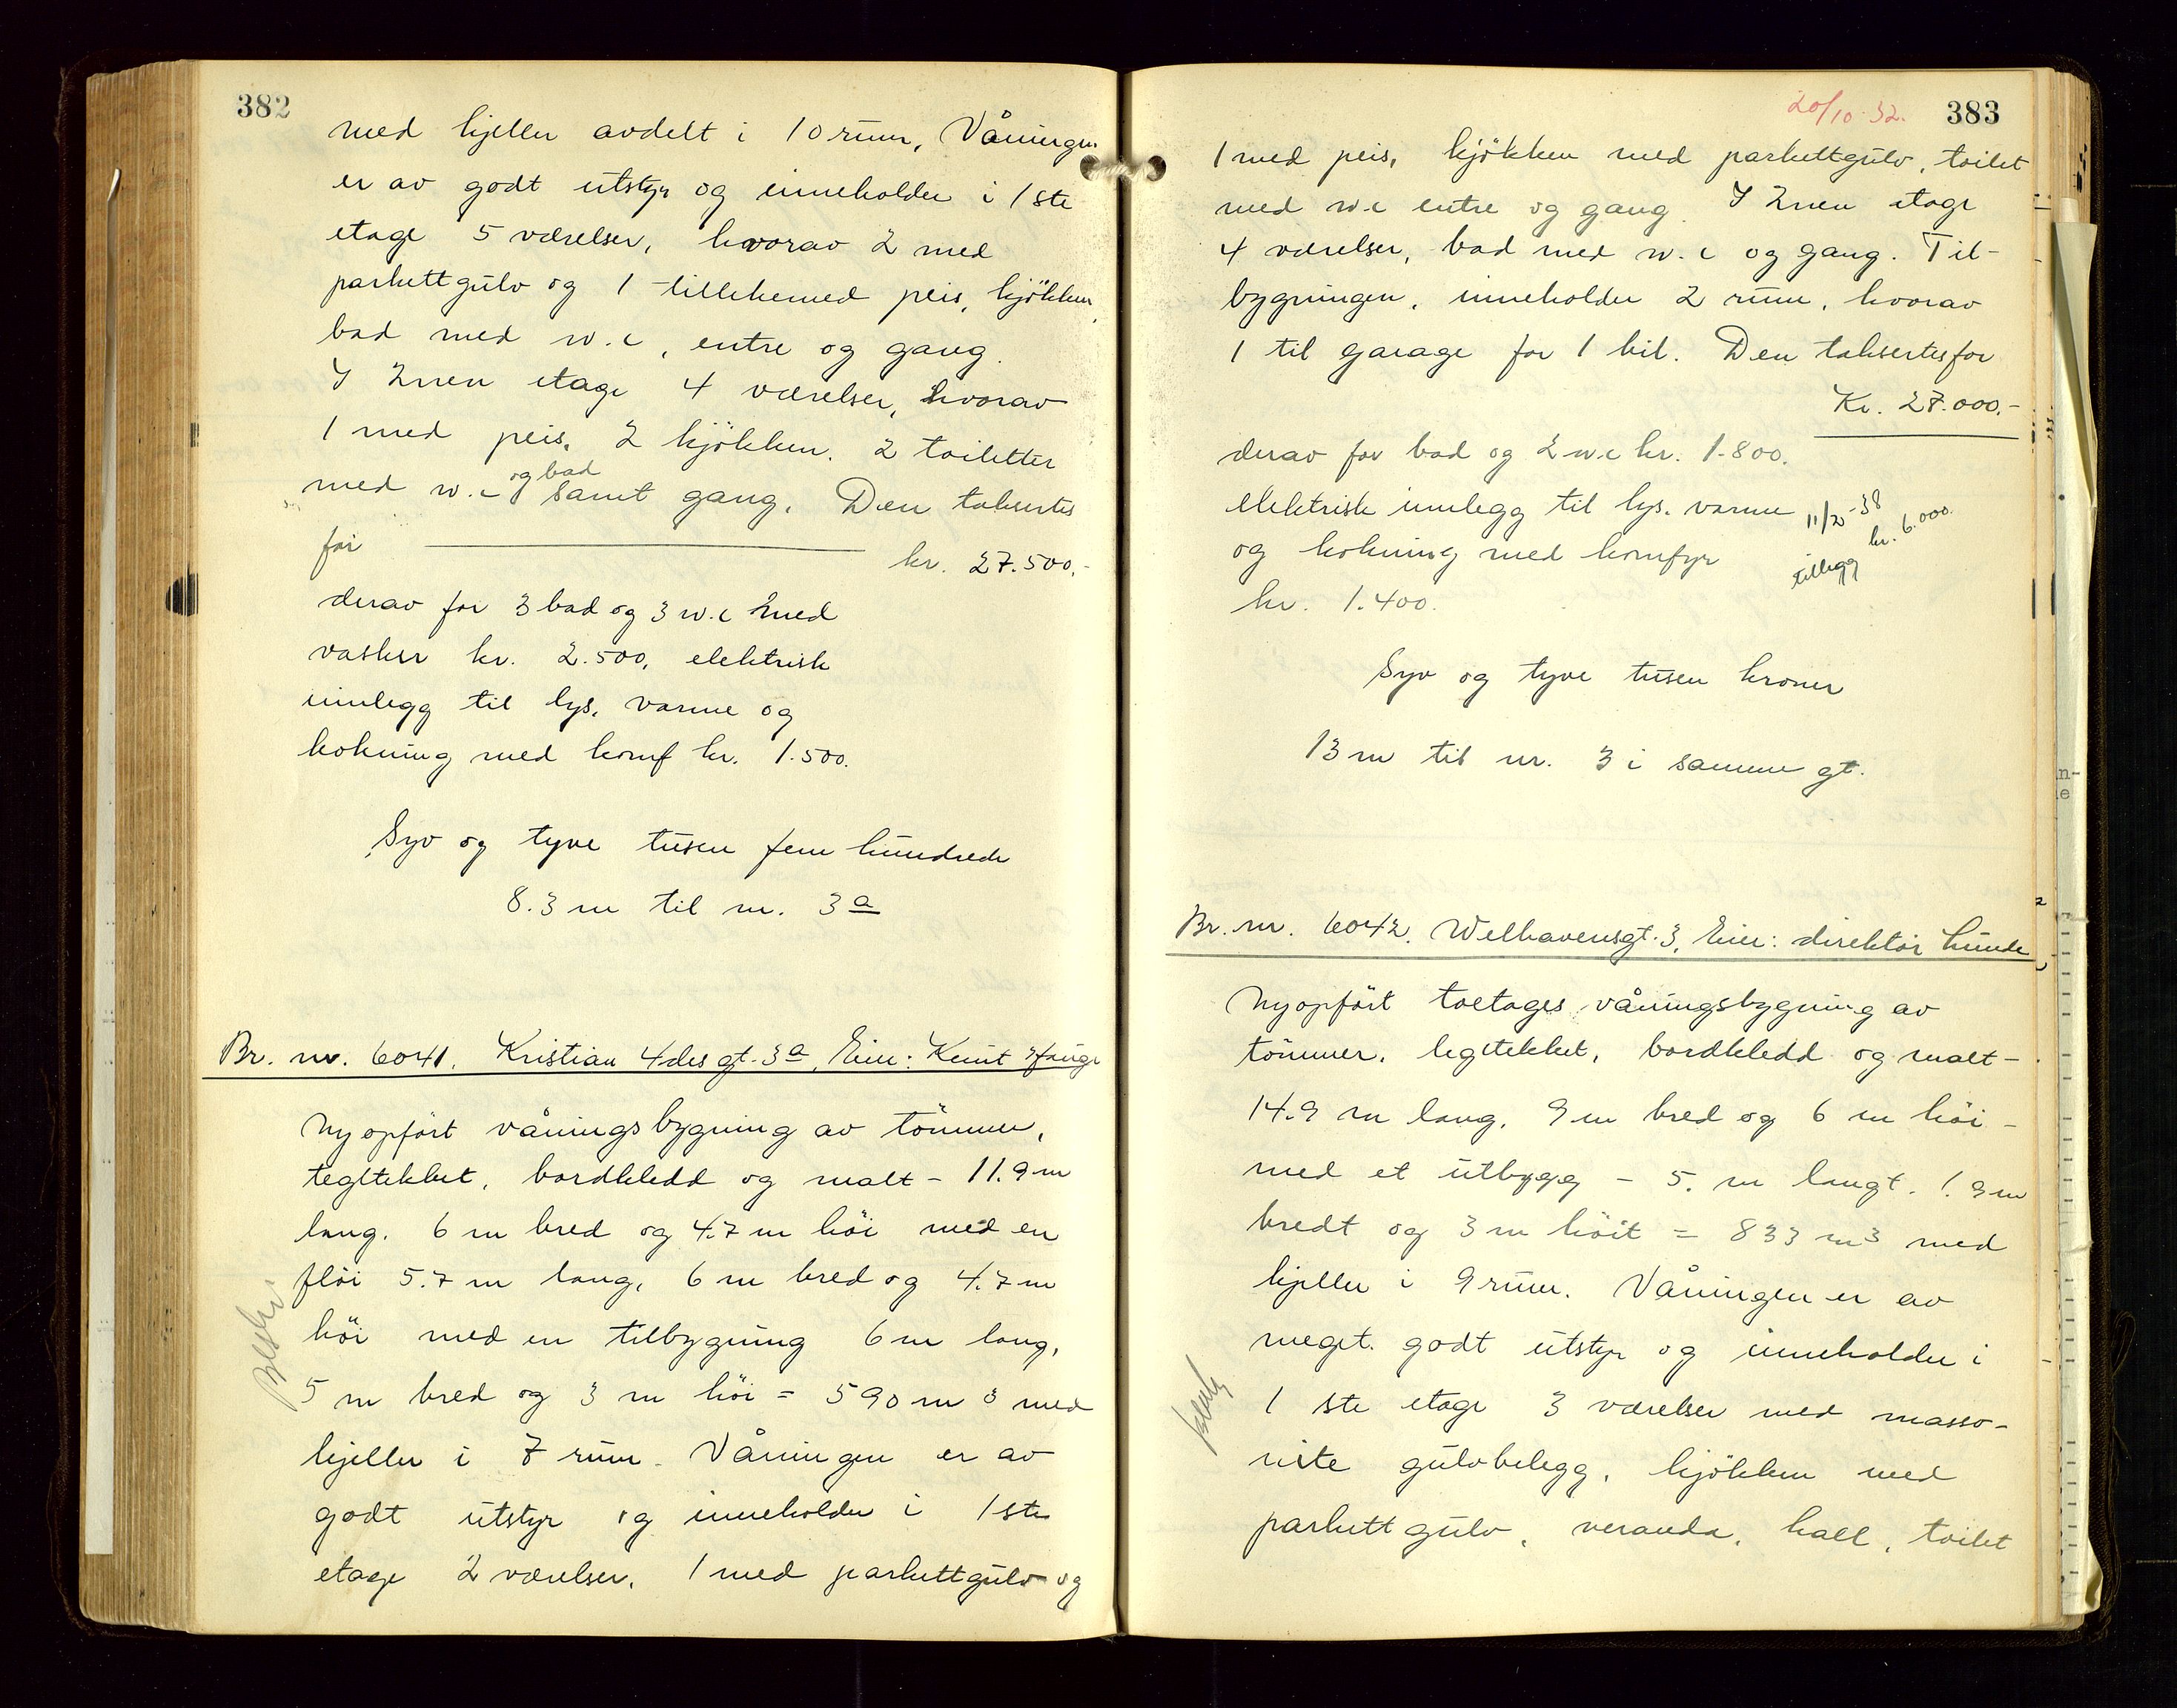 382
med kjeller avdelt i 10 rum, Våningen
er av godt utstyr og inneholder i 1ste
etage 5 værelser, hvorav 2 med
parkettgulv og 1 tillike med peis, kjökken,
bad med w.c, entre og gang.
I 2nen etage 4 værelser, hvorav
1 med peis, 2 kjökken, 2 toiletter
og bad
med w.c samt gang. Den taksertes
for kr. 27.500.-
derav for 3 bad og 3 w.c med
vasker kr. 2.500, elektrisk
innlegg til lys, varme og
kokning med komf kr. 1.500.
Syv og tyve tusen fem hundrede
8.3 m til nr. 3a
Br. nr. 6041. Kristian 4des gt. 3a, Eier: Knut Hauge
Nyopfört våningsbygning av tömmer,
tegltekket, bordkledd og malt - 11.9 m
lang. 6 m bred og 4.7 m höi med en
flöi 5.7 m lang, 6 m bred og 4.7 m
höi med en tilbygning 6 m lang,
5 m bred og 3 m höi = 590 m3 med
kjeller i 7 rum. Våningen er av
godt utstyr og inneholder i 1ste
etage 2 værelser, 1 med parkettgulv og
20/10-32. 383
1 med peis, kjökken med parkettgulv, toilet
med w.c entre og gang. I 2nen etage
4 værelser, bad med w.c og gang. Til-
bygningen, inneholder 2 rum, hvorav
1 til garage for 1 bil. Den taksertes for
Kr. 27.000.-
derav for bad og 2 w.c kr. 1.800.
elektrisk innlegg til lys, varme
og kokning med komfyr
kr. 1.400.
-38
tillegg kr. 6.000.
Syv og tyve tusen kroner
13 m til nr. 3 i samme gt.
Br. nr. 6042. Welhavensgt. 3, Eier: direktör Lunde
Nyopfört toetages våningsbygning av
tömmer, tegltekket, bordkledd og malt -
14.9 m lang, 9 m bred og 6 m höi -
med et utbygg - 5. m langt, 1.9 m
bredt og 3 m höit = 833 m3 med
kjeller i 9 rum. Våningen er av
meget godt utstyr og inneholder i
1 ste etage 3 værelser med masso-
nite gulvbelegg, kjökken med
parkettgulv, veranda, hall, toilet